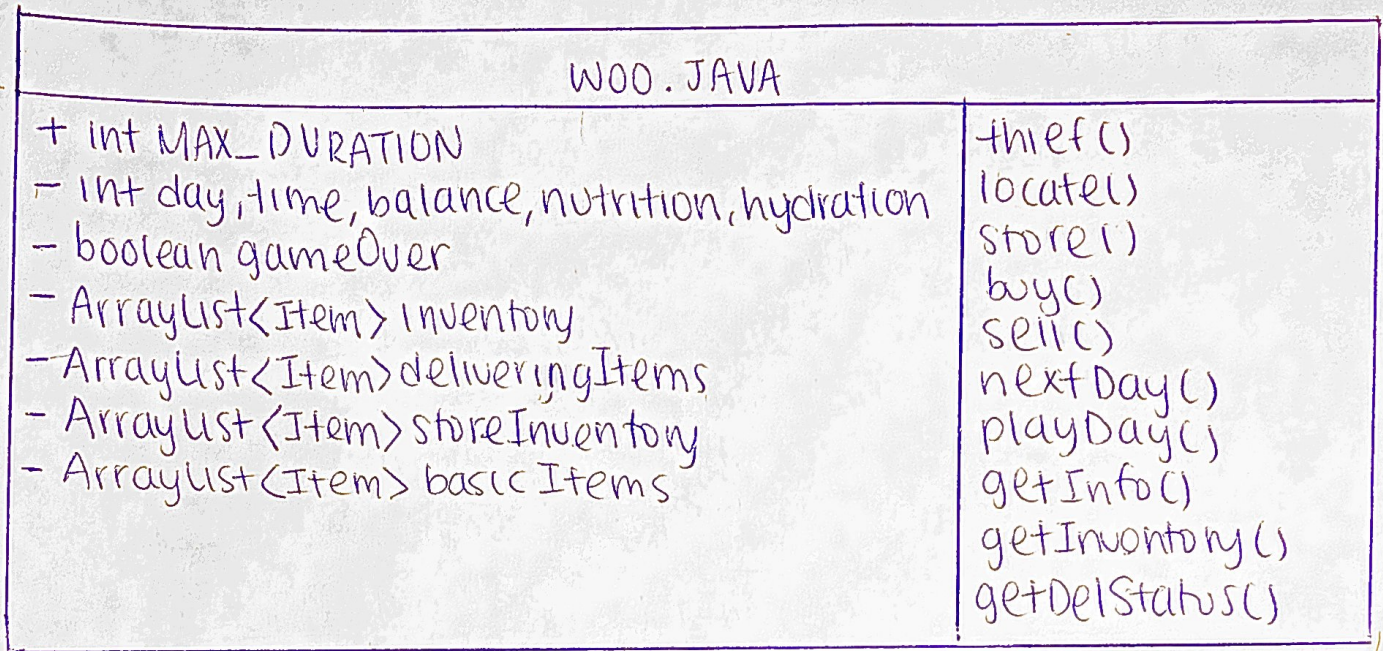 WOO.JAVA
+ int MAX_DURATION
- int day, time, balance, nutrition, hydration
- boolean gameOver
- ArrayList<Item> inventory
- ArrayList<Item> deliveringItems
- ArrayList<Item> storeInventory
- ArrayList<Item> basicItems
thief()
locate()
store()
buy()
sell()
nextDay()
playDay()
getInfo()
getInventory()
getDelStatus()